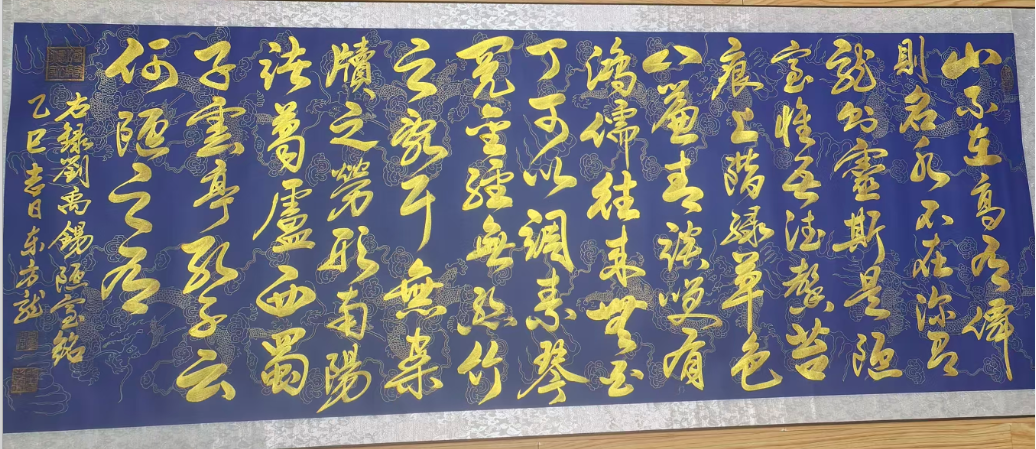 山不在高有僊
則名水不在深有
龍則靈斯是陋
室惟吾德馨苔
痕上階綠草色
入簾青談笑有
鴻儒往來無白
丁可以調素琴
閱金經無絲竹
之亂耳無案
牘之勞形南陽
諸葛廬西蜀
子雲亭孔子云
何陋之有
右錄劉禹錫陋室銘
乙巳春日東方龍